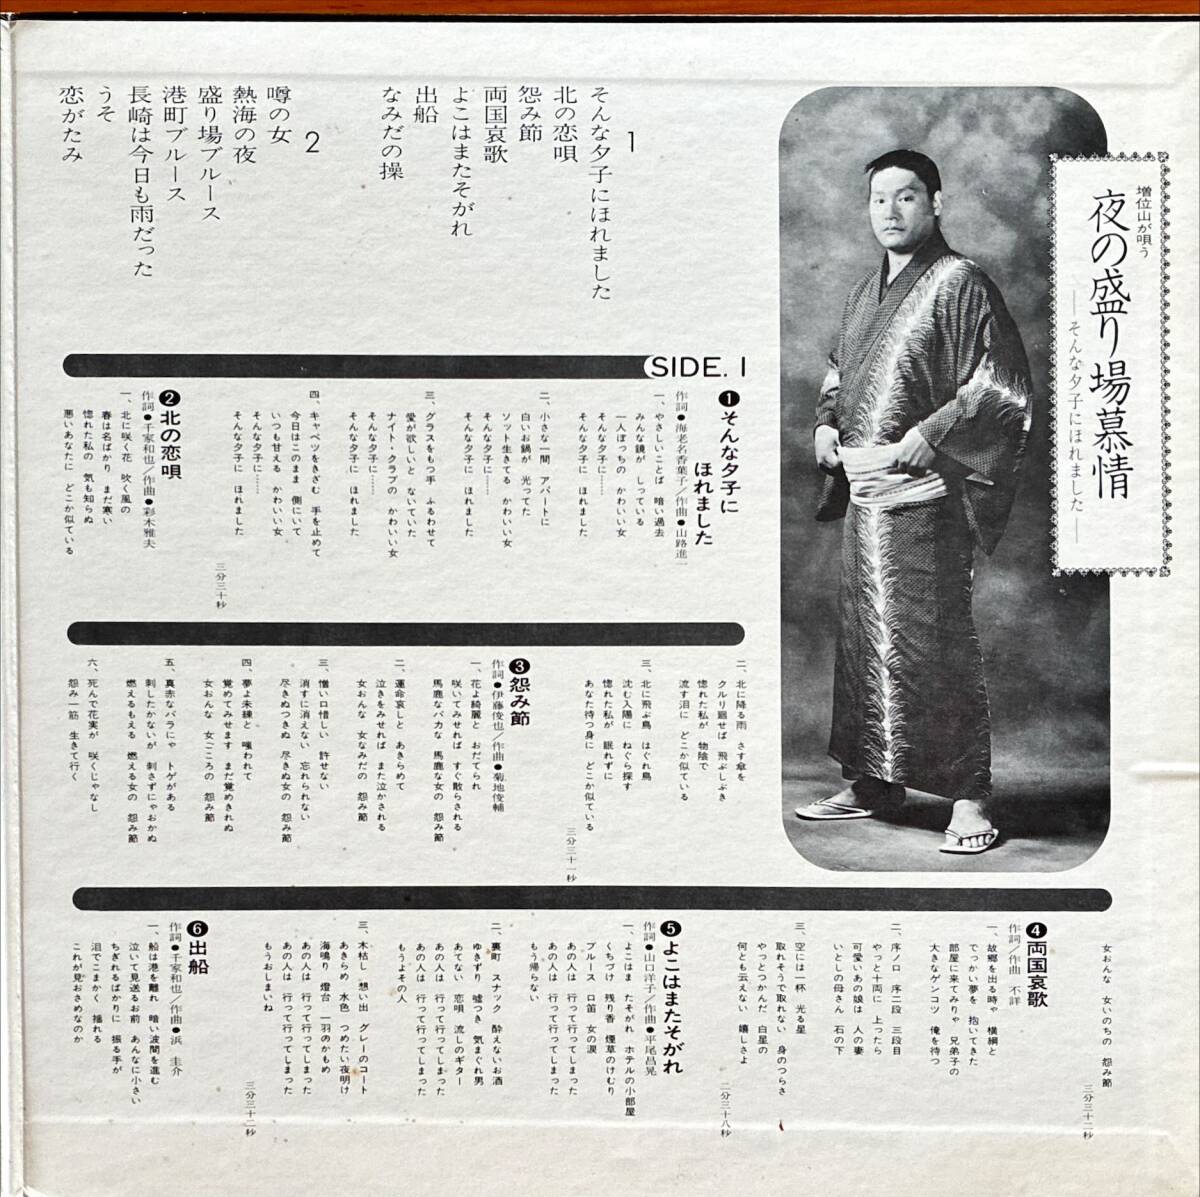 増位山が唄う
夜の盛り場慕情
―そんな夕子にほれました―
1
そんな夕子にほれました
北の恋唄
怨み節
両国哀歌
よこはまたそがれ
出船
なみだの操
2
噂の女
熱海の夜
盛り場ブルース
港町ブルース
長崎は今日も雨だった
うそ
恋がたみ
SIDE. 1
❶そんな夕子に
ほれました
作詞●海老名香葉子／作曲●山路進一
一、やさしいことば 暗い過去
みんな鏡が しっている
一人ぼっちの かわいい女
そんな夕子に……
そんな夕子に ほれました
二、小さな一間 アパートに
白いお鍋が 光ってた
ソット生きてる かわいい女
そんな夕子に……
そんな夕子に ほれました
三、グラスをもつ手 ふるわせて
愛が欲しいと ないていた
ナイト・クラブの かわいい女
そんな夕子に……
そんな夕子に ほれました
四、キャベツをきざむ 手を止めて
今日はこのまま 側にいて
いつも甘える かわいい女
そんな夕子に……
そんな夕子に ほれました
三分三十秒
❷北の恋唄
作詞●千家和也／作曲●彩木雅夫
一、北に咲く花 吹く風の
春は名ばかり まだ寒い
惚れた私の 気も知らぬ
悪いあなたに どこか似ている
二、北に降る雨 さす傘を
クルリ廻せば 飛ぶしぶき
惚れた私が 物陰で
流す泪に どこか似ている
三、北に飛ぶ鳥 はぐれ鳥
沈む入陽に ねぐら探す
惚れた私が 眠れずに
あなた待つ身に どこか似ている
三分三十一秒
❸怨み節
作詞●伊藤俊也／作曲●菊地俊輔
一、花よ綺麗と おだてられ
咲いてみせれば すぐ散らされる
馬鹿なバカな 馬鹿な女の 怨み節
二、運命哀しと あきらめて
泣きをみせれば また泣かされる
女おんな 女なみだの 怨み節
三、憎い口惜しい 許せない
消すに消えない 忘れられない
尽きぬつきぬ 尽きぬ女の 怨み節
四、夢よ未練と 嗤われて
覚めてみせます まだ覚めきれぬ
女おんな 女ごころの 怨み節
五、真赤なバラにゃ トゲがある
刺したかないが 刺さずにゃおかぬ
燃えるもえる 燃える女の 怨み節
六、死んで花実が 咲くじゃなし
怨み一筋 生きて行く
女おんな 女いのちの 怨み節
三分三十二秒
❹両国哀歌
作詞／作曲 不詳
一、故郷を出る時ゃ 横綱と
でっかい夢を 抱いてきた
部屋に来てみりゃ 兄弟子の
大きなゲンコツ 俺を待つ
二、序ノ口 序二段 三段目
やっと十両に 上ったら
可愛いあの娘は 人の妻
いとしの母さん 石の下
三、空には一杯 光る星
取れそうで取れない 身のつらさ
やっとつかんだ 白星の
何とも云えない 嬉しさよ
二分三十八秒
❺よこはまたそがれ
作詞●山口洋子／作曲●平尾昌晃
一、よこはま たそがれ ホテルの小部屋
くちづけ 残り香 煙草のけむり
ブルース 口笛 女の涙
あの人は 行って行ってしまった
あの人は 行って行ってしまった
もう帰らない
二、裏町 スナック 酔えないお酒
ゆきずり 嘘つき 気まぐれ男
あてない 恋唄 流しのギター
あの人は 行って行ってしまった
あの人は 行って行ってしまった
もうよその人
三、木枯し 想い出 グレーのコート
あきらめ 水色 つめたい夜明け
海鳴り 燈台 一羽のかもめ
あの人は 行って行ってしまった
あの人は 行って行ってしまった
もうおしまいね
三分三十二秒
❻出船
作詞●千家和也／作曲●浜 圭介
一、船は港を離れ 暗い波間を進む
泣いて見送るお前 あんなに小さい
ちぎれるばかりに 振る手が
泪でこまかく 揺れる
これが見おさめなのか